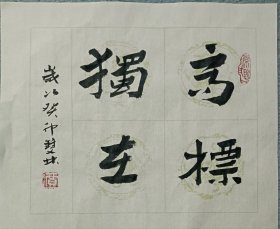 高標
獨立
歲次癸卯